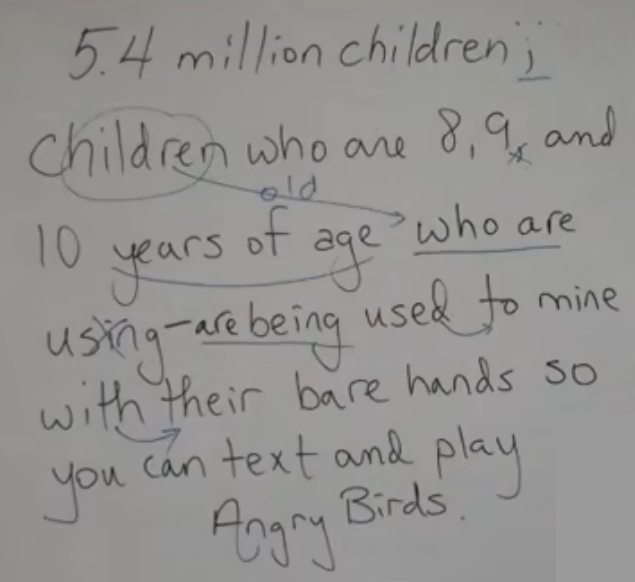 5.4 million children;
Children who are 8,9, and
old
10 years of age who are
using-are being used to mine
with their bare hands so
you can text and play
Angry Birds.